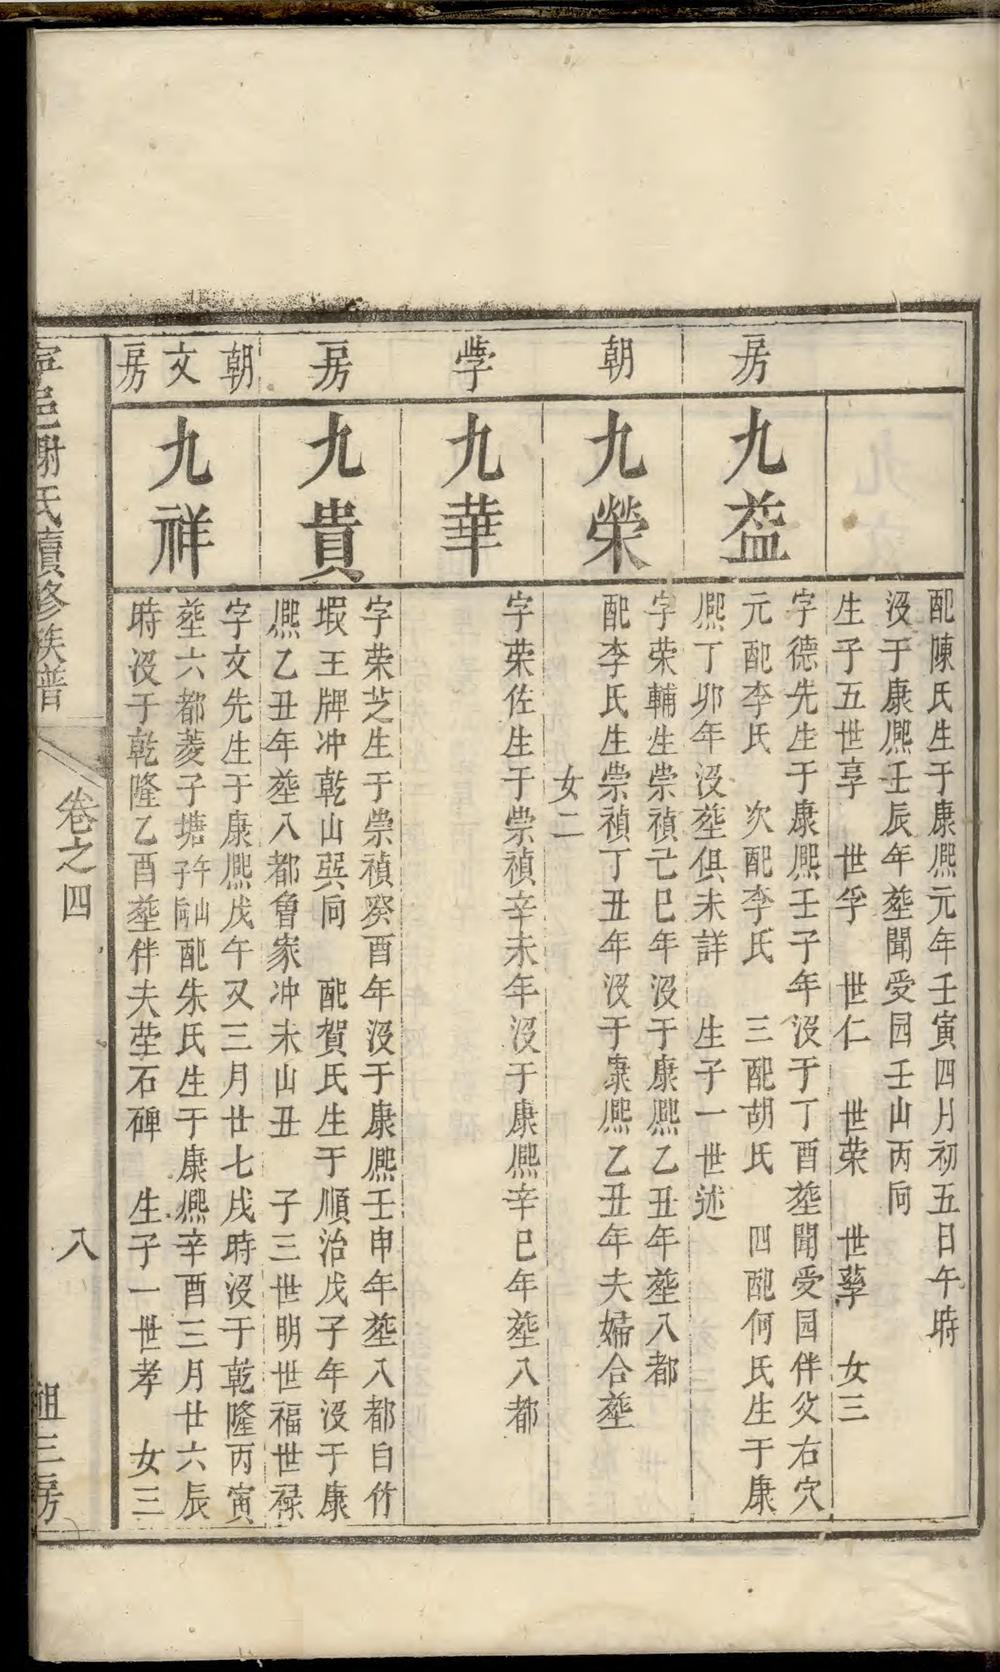 房
朝
學
房
朝文房
配陳氏生于康熙元年壬寅四月初五日午時
沒于康熙壬辰年塟聞受园壬山丙向
生子五世享　世孚　世仁　世荣　世孳　女三
九益
字德先生于康熙壬子年沒于丁酉塟聞受园伴父右穴
元配李氏　次配李氏　三配胡氏　四配何氏生于康
熙丁卯年沒塟俱未詳　生子一世述
九榮
字荣輔生崇禎己巳年沒于康熙乙丑年塟八都
配李氏生崇禎丁丑年沒于康熙乙丑年夫婦合塟
女二
九華
字荣佐生于崇禎辛未年沒于康熙辛巳年塟八都
九貴
字荣芝生于崇禎癸酉年沒于康熙壬申年塟八都白竹
塅王牌冲乾山巽向　配賀氏生于順治戊子年沒于康
熙乙丑年塟八都魯家冲未山丑　子三世明世福世祿
九祥
字文先生于康熙戊午又三月廿七戌時沒于乾隆丙寅
塟六都菱子塘午山子向配朱氏生于康熙辛酉三月廿六辰
時沒于乾隆乙酉塟伴夫塋石碑　生子一世孝　女三
寧邑謝氏續修族譜
卷之四
八
祖三房